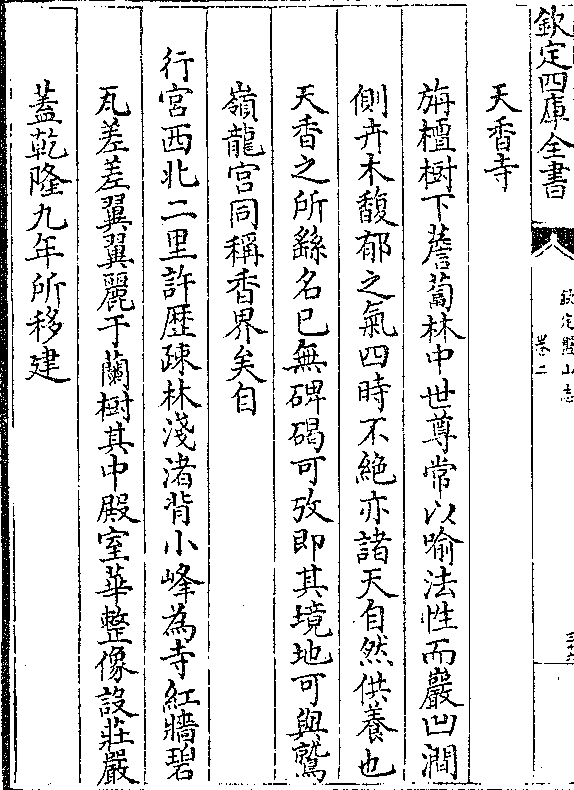 欽定四庫全書
欽定盤山志
卷二
天香寺
旃檀樹下薝蔔林中世尊常以喻法性而巖凹澗
側卉木馥郁之氣四時不絶亦諸天自然供養也
天香之所繇名已無碑碣可攷即其境地可與鷲
嶺龍宫同稱香界矣自
行宫西北二里許歴疎林淺渚背小峰為寺紅牆碧
瓦差差翼翼麗于蘭樹其中殿室華整像設莊嚴
蓋乾隆九年所移建